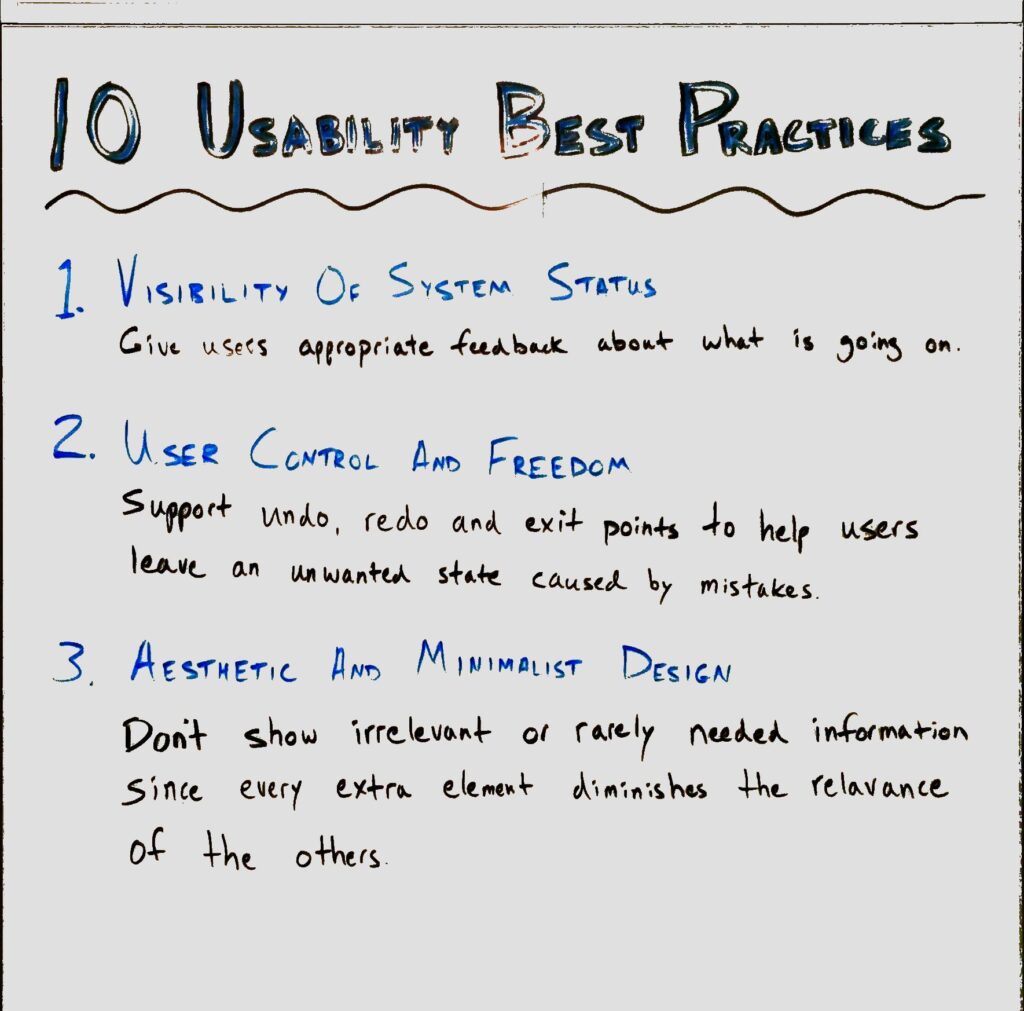 10 USABILITY BEST PRACTICES
1. VISIBILITY OF SYSTEM STATUS
Give users appropriate feedback about what is going on.
2. USER CONTROL AND FREEDOM
Support undo, redo and exit points to help users
leave an unwanted state caused by mistakes.
3. AESTHETIC AND MINIMALIST DESIGN
Don't show irrelevant or rarely needed information
since every extra element diminishes the relavance
of the others.